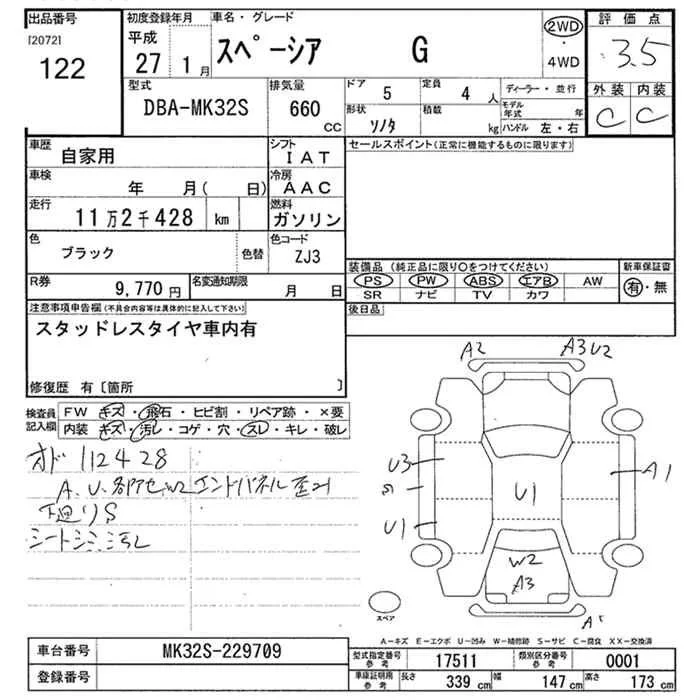 出品番号 初度登録年月 車名・グレード 評価点
[2072] 平成 スペーシア G 2WD・4WD 3.5
122 27 1月
型式 排気量 ドア 定員 ディーラー・並行 外装 内装
DBA-MK32S 660 CC 5 4人 モデル年式 年 C C
形状 積載 ハンドル 左・右
ソノタ kg
車歴 シフト セールスポイント(正常に機能するものに限ります)
自家用 IAT
車検 冷房
年 月( 日) AAC
走行 燃料
11万2千428 km ガソリン
色 色替 色コード
ブラック ZJ3
装備品 (純正品に限り○をつけてください) 新車保証書
PS PW ABS エアB AW 有・無
SR ナビ TV カワ
R券 名変通知期限
9,770円 月 日
後日品
注意事項申告欄(不具合内容等は具体的に記入して下さい)
スタッドレスタイヤ車内有
修復歴 有〔箇所 〕
検査員記入欄 FW キズ・飛石・ヒビ割・リペア跡・×要
内装 キズ・汚レ・コゲ・穴・スレ・キレ・破レ
オド112428
A.U.部アセW2エンドパネル歪ミ
下廻りS
シートシミ、汚レ
A2 A3U2
U3 A1
U1
U1
W2
A3
スペア
A-キズ E-エクボ U-凹み W-補修跡 S-サビ C-腐食 XX-交換済
車台番号 MK32S-229709
型式指定番号 参考 17511 類別区分番号 参考 0001
登録番号
車庫証明用 参考 長さ 339cm 幅 147cm 高さ 173cm